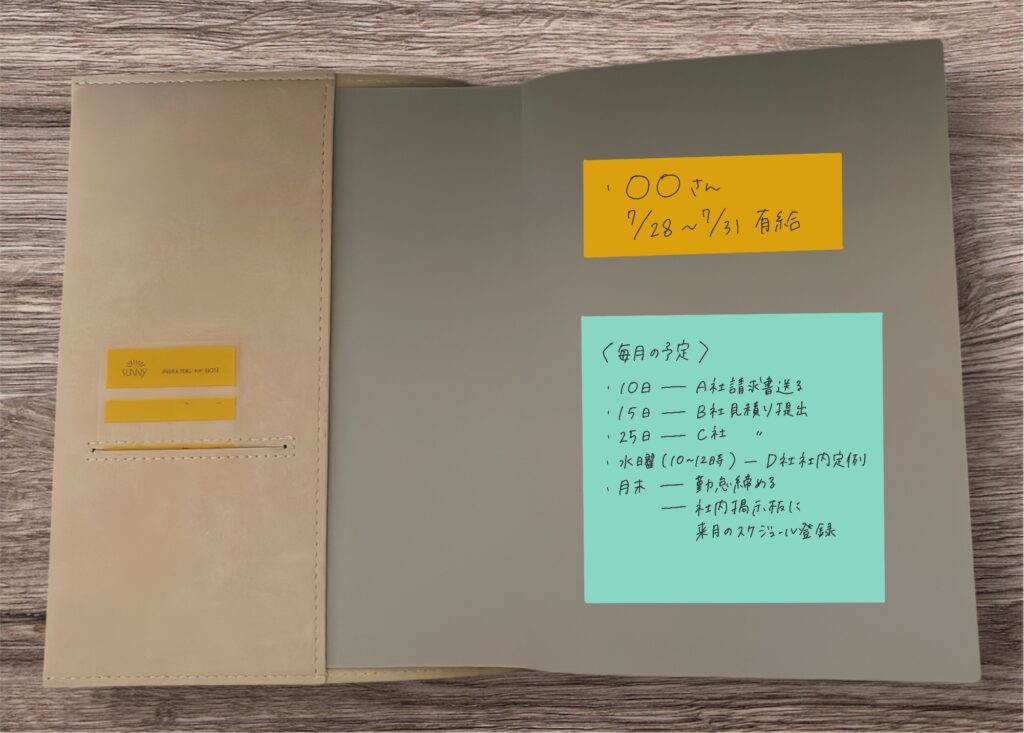 SUNNY
INDEX SEAL for NOTE
・〇〇さん
7/28〜7/31 有給
〈毎月の予定〉
・10日 — A社請求書送る
・15日 — B社見積り提出
・25日 — C社 〃
・水曜(10~12時) — D社社内定例
・月末 — 勤怠締める
— 社内掲示板に
来月のスケジュール登録